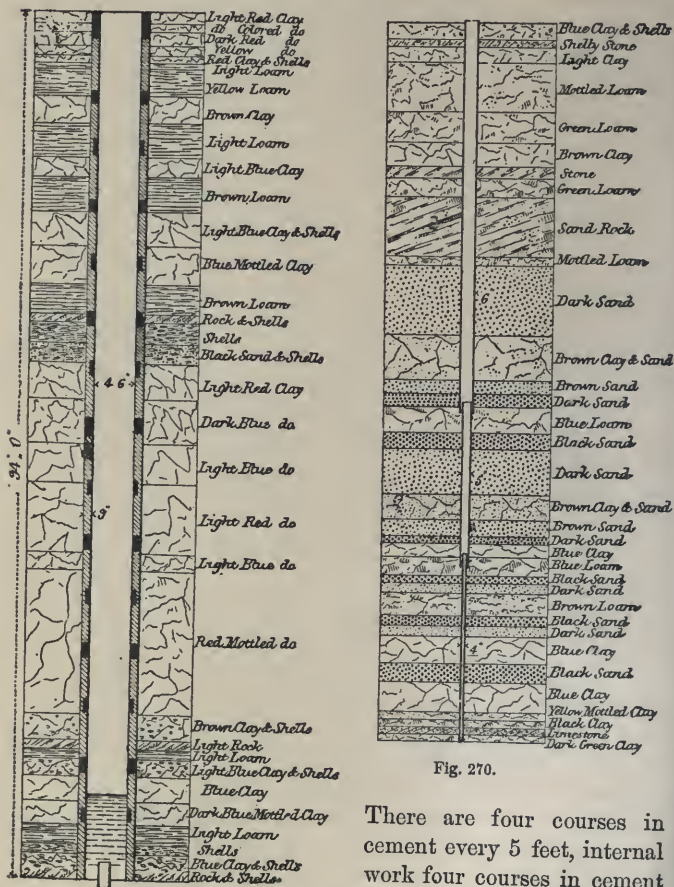 Light Red Clay
do Colored do
Dark Red do
Yellow do
Red Clay & Shells
Light Loam
Yellow Loam
Brown Clay
Light Loam
Light Blue Clay
Brown Loam
Light Blue Clay & Shells
Blue Mottled Clay
Brown Loam
Rock & Shells
Shells
Black Sand & Shells
4.6"
Light Red Clay
Dark Blue do
94'.0"
Light Blue do
9"
Light Red do
Light Blue do
Red Mottled do
Brown Clay & Shells
Light Rock
Light Loam
Light Blue Clay & Shells
Blue Clay
Dark Blue Mottled Clay
Light Loam
Shells
Blue Clay & Shells
Rock & Shells
Blue Clay & Shells
Shelby Stone
Light Clay
Mottled Loam
Green Loam
Brown Clay
Stone
Green Loam
Sand Rock
Mottled Loam
6
Dark Sand
Brown Clay & Sand
Brown Sand
Dark Sand
Blue Loam
Black Sand
Dark Sand
5
Brown Clay & Sand
Brown Sand
Dark Sand
Blue Clay
Blue Loam
Black Sand
Dark Sand
Brown Loam
Black Sand
Dark Sand
4
Blue Clay
Black Sand
Blue Clay
Yellow Mottled Clay
Black Clay
Limestone
Dark Green Clay
Fig. 270.
There are four courses in
cement every 5 feet, internal
work four courses in cement